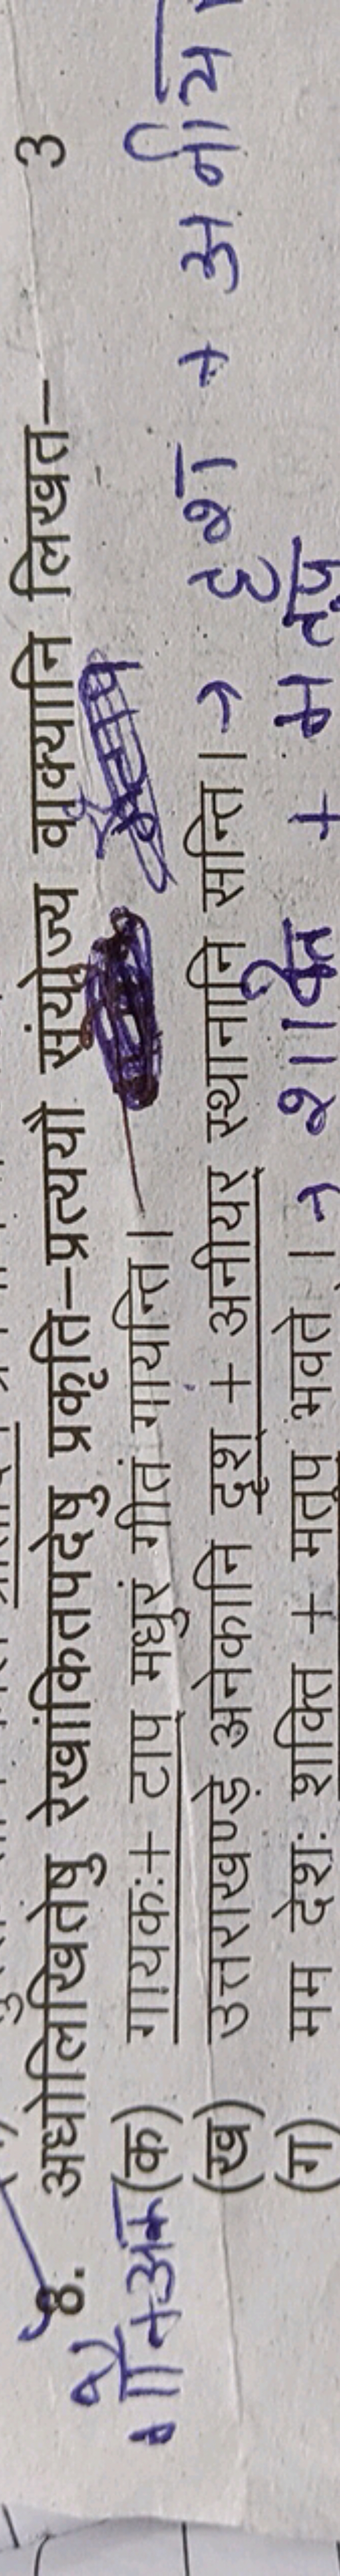 8. अधोलिखितेषु रेखांकितपदेषु प्रकृति-प्रत्ययौ संयोज्य वाक्यानि लिखत- 3
(क) गायकः+ टाप् मधुरं गीतं गायन्ति।
(ख) उत्तराखण्डे अनेकानि दृश् + अनीयर् स्थानानि सन्ति। → दृश + अनीय
(ग) मम देशः शक्ति + मतुप् भवते। → शक्ति + मतुप